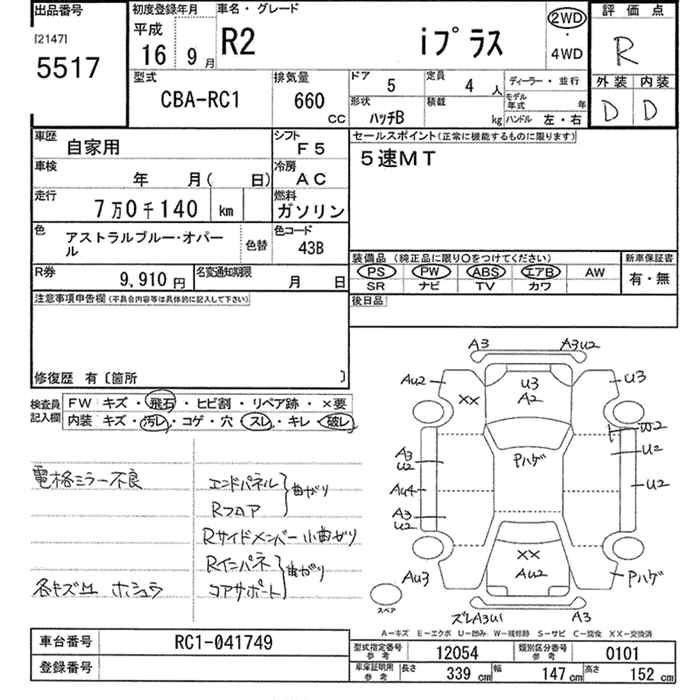 出品番号
[2147]
5517
初度登録年月
平成
16 9月
車名・グレード
R2 iプラス
2WD
・
4WD
評価点
R
外装 内装
D D
型式
CBA-RC1
排気量
660
CC
ドア 5
定員 4 人
形状 ハッチB
積載 kg
ディーラー・並行
モデル年式 年
ハンドル 左・右
車歴 自家用
シフト F5
車検 年 月( 日)
冷房 AC
走行 7万0千140 km
燃料 ガソリン
色 アストラルブルー・オパール
色替
色コード 43B
R券 9,910円
名変通知期限 月 日
セールスポイント(正常に機能するものに限ります)
5速MT
装備品(純正品に限り○をつけてください)
PS PW ABS エアB AW
SR ナビ TV カワ
新車保証書
有・無
後日品
注意事項申告欄(不具合内容等は具体的に記入して下さい)
修復歴 有〔箇所 〕
検査員記入欄
FW キズ・飛石・ヒビ割・リペア跡・×要
内装 キズ・汚レ・コゲ・穴・スレ・キレ・破レ
電格ミラー不良
各キズ凹 ホシュラ
エンドパネル
Rフロア
曲がり
Rサイドメンバー 小曲がり
Rインパネ
コアサポート
曲がり
A3 A3U2
AU2 U3 U3
XX A2
W2
A3
U2
Pハゲ
U2
AU4
U2
A3
U2
XX
AU3 AU2 Pハゲ
スペア
ズレA3U1 A3
A-キズ E-エクボ U-凹み W-補修跡 S-サビ C-腐食 XX-交換済
車台番号 RC1-041749
登録番号
型式指定番号 参考 12054
類別区分番号 参考 0101
車庫証明用 参考
長さ 339 cm 幅 147 cm 高さ 152 cm